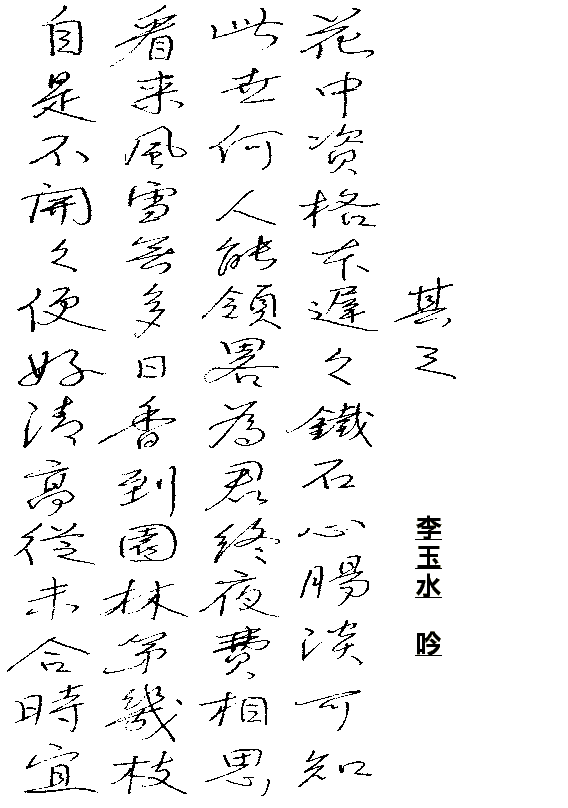 其三
李玉水 吟
花中資格本遲々鐵石心腸淡可知
此世何人能領畧為君終夜費相思
看来風雪無多日香到園林第幾枝
自是不開々便好清高從未合時宜